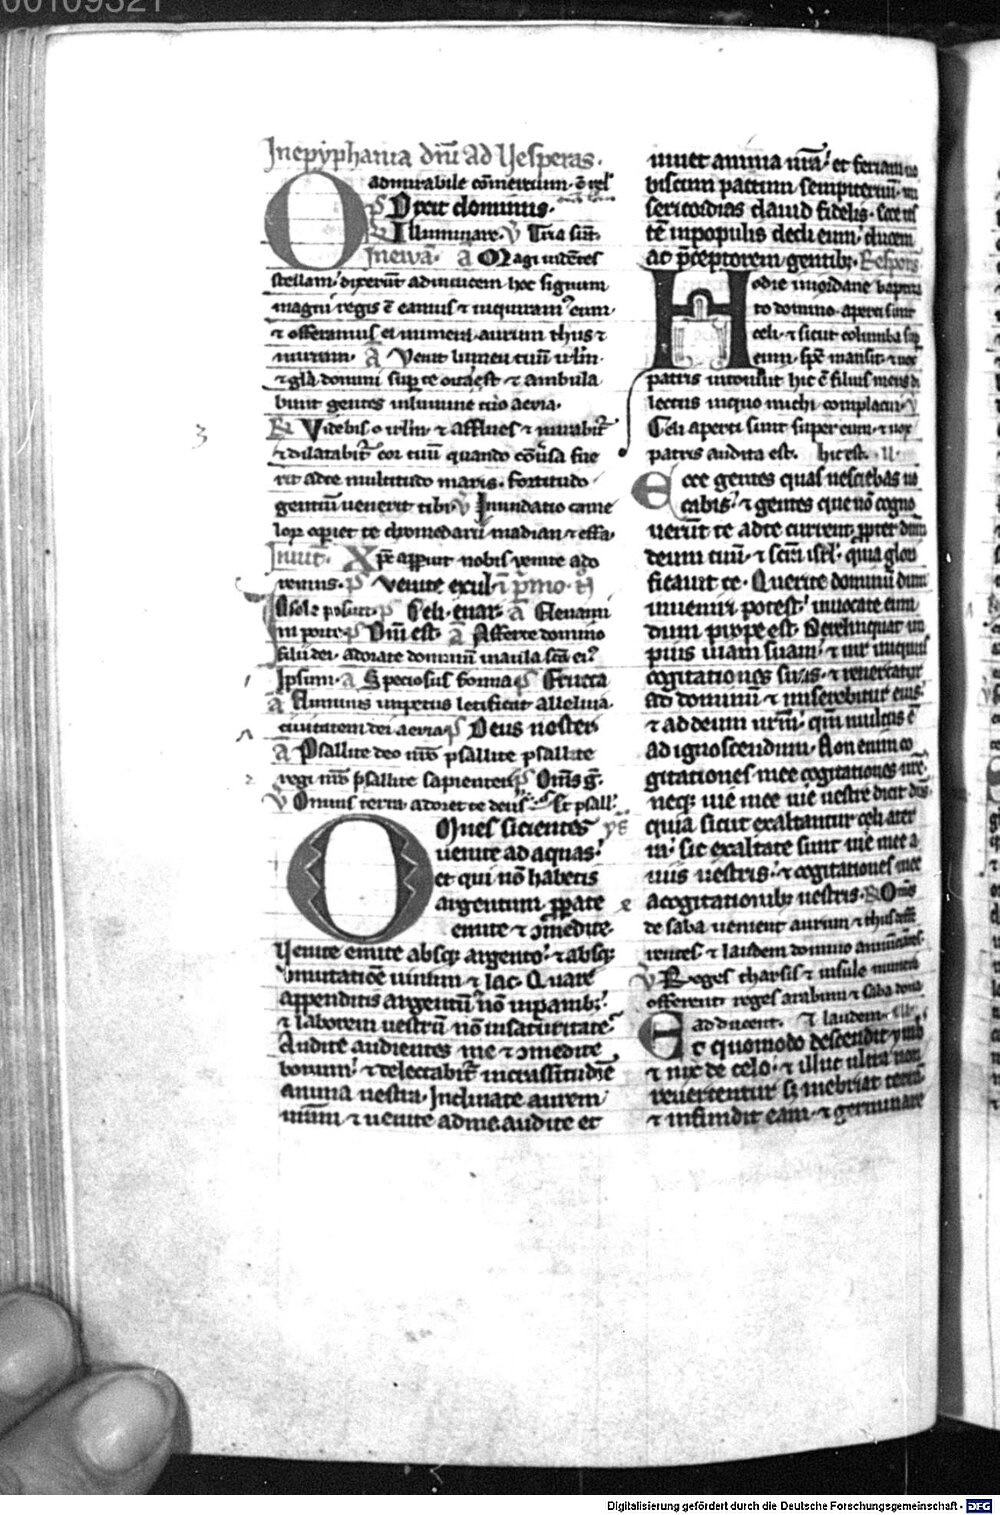 00109321
Inepyphania dñi ad Vesperas.
O admirabile cōmercium. ⁊ rel̕
p̄s Dixit dominus.
Illuminare. ℣ Tria sūt.
In eiuā. ā Magi uidētes
stellam. dixerūt adinuicem hoc signum
magni regis ē eamus ⁊ inquiram̕ eum.
⁊ offeramus ei munera. aurum thus ⁊
mirram. ā Venit lumen tuū ierl̄m.
⁊ gl̄a domini sup̱ te orta est ⁊ ambula
bunt gentes inlumine tuo aeuia.
R̄ Videbis o ierl̄m. ⁊ afflues ⁊ mirabit̕
⁊ dilatabit̕ cor tuū quando cōuersa fue
rit adte multitudo maris. fortitudo
gentiū uenerit tibi. ℣ Inundatio came
lorꝝ operiet te dromedarii madian ⁊ effa.
Inuit. Xp̄c apparuit nobis uenite ado
remus. p̄s Venite exul. ī prīmo. n̄
A solis ortu p̄s Celi. enar. ā
p̄s Dn̄i est. ā Afferte domino
filii dei. adorate dominū inaula sc̄a ei̕
Ipsum. ā Speciosus forma p̄s Eructa
ā Fluminis impetus letificat alleluia.
ciuitatem dei aeuia p̄s Deus noster
ā Psallite deo nr̄o psallite psallite
regi nr̄o psallite sapienter p̄s Om̄s g̃.
℣ Omnis terra adoret te deus. Et psall̕.
Omnes sicientes ys̄
uenite ad aquas.
et qui nō habetis
argentum. ꝓperate
emite ⁊ ꝯmedite.
Venite emite absq; argento. ⁊ absq;
ꝯmutatiōe uinum ⁊ lac. Quare
appenditis argentū nō inpanib;.
⁊ laborem uestrū nō insaturitate.
Audite audientes me ⁊ ꝯmedite
bonum. ⁊ delectabit̕ incrassitudīe
anima uestra. Inclinate aurem
uram ⁊ uenite adme. audite et
uiuet anima ur̄a. et feriam uo
biscum pactum sempiternū. mi
sericordias dauid fidelis. Ecce tes
tē inpopulis dedi eum. ducem
ac p̄ceptorem gentib;. Respons
Hodie iniordane baptiza
to domino. aperti sunt
celi. ⁊ sicut columba sup̱
eum. sp̄c mansit. ⁊ uox
patris intonuit hic ē filius meus di
lectus inquo michi complacui. ℣
Celi aperti sunt super eum. ⁊ uox
patris audita est. hic est. II.
Ecce gentes quas nesciebas uo
cabis. ⁊ gentes que nō cogno
uerūt te adte current. ꝓpter dn̄m
deum tuū. ⁊ scm̄ isrl̄. quia glori
ficauit te. Querite dominū dum
inueniri potest. inuocate eum
dum prope est. Derelinquat im
pius uiam suam. ⁊ uir iniquus
cogitationes suas. ⁊ reuertatur
ad dominū ⁊ miserebitur eius.
⁊ ad deum nr̄m. qm̄ multus ē
ad ignoscendum. Non enim co
gitationes mee cogitationes ur̄e.
neq; uie mee uie uestre dicit dn̄s.
quia sicut exaltantur celi ater
ra. sic exaltate sunt uie mee a
uiis uestris. ⁊ cogitationes mee
acogitationib; uestris. R̄ Om̄s
de saba uenient aurum ⁊ thus deff
rentes. ⁊ laudem domino annuntiātes.
℣ Reges tharsis ⁊ insule munera
offerent. reges arabum ⁊ saba dona
adducent. ⁊ laudem. III.
Et quomodo descendit ymb̕
⁊ nix de celo. ⁊ illuc ultra non
reuertentur. s; inebriat terrā
⁊ infundit eam. ⁊ germinare
Digitalisierung gefördert durch die Deutsche Forschungsgemeinschaft - DFG